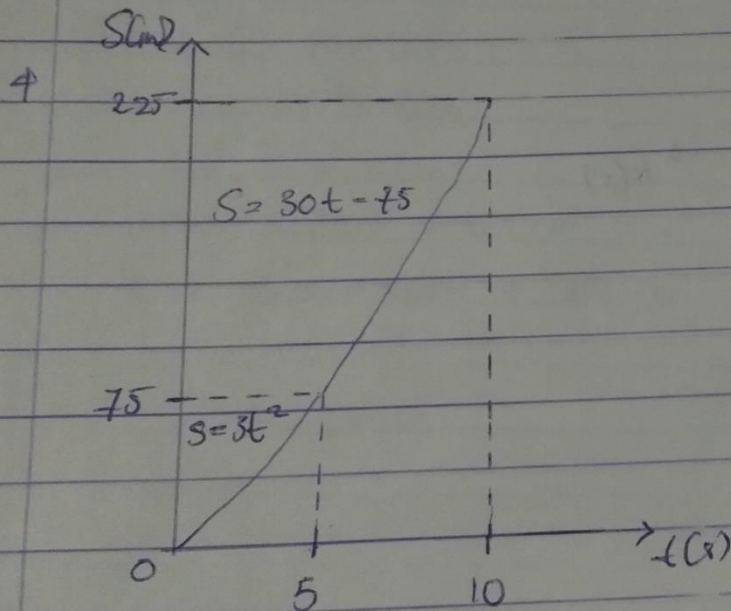 S(m)
4
225
S = 30t - 75
75
S = 3t²
0
5
10
t(s)